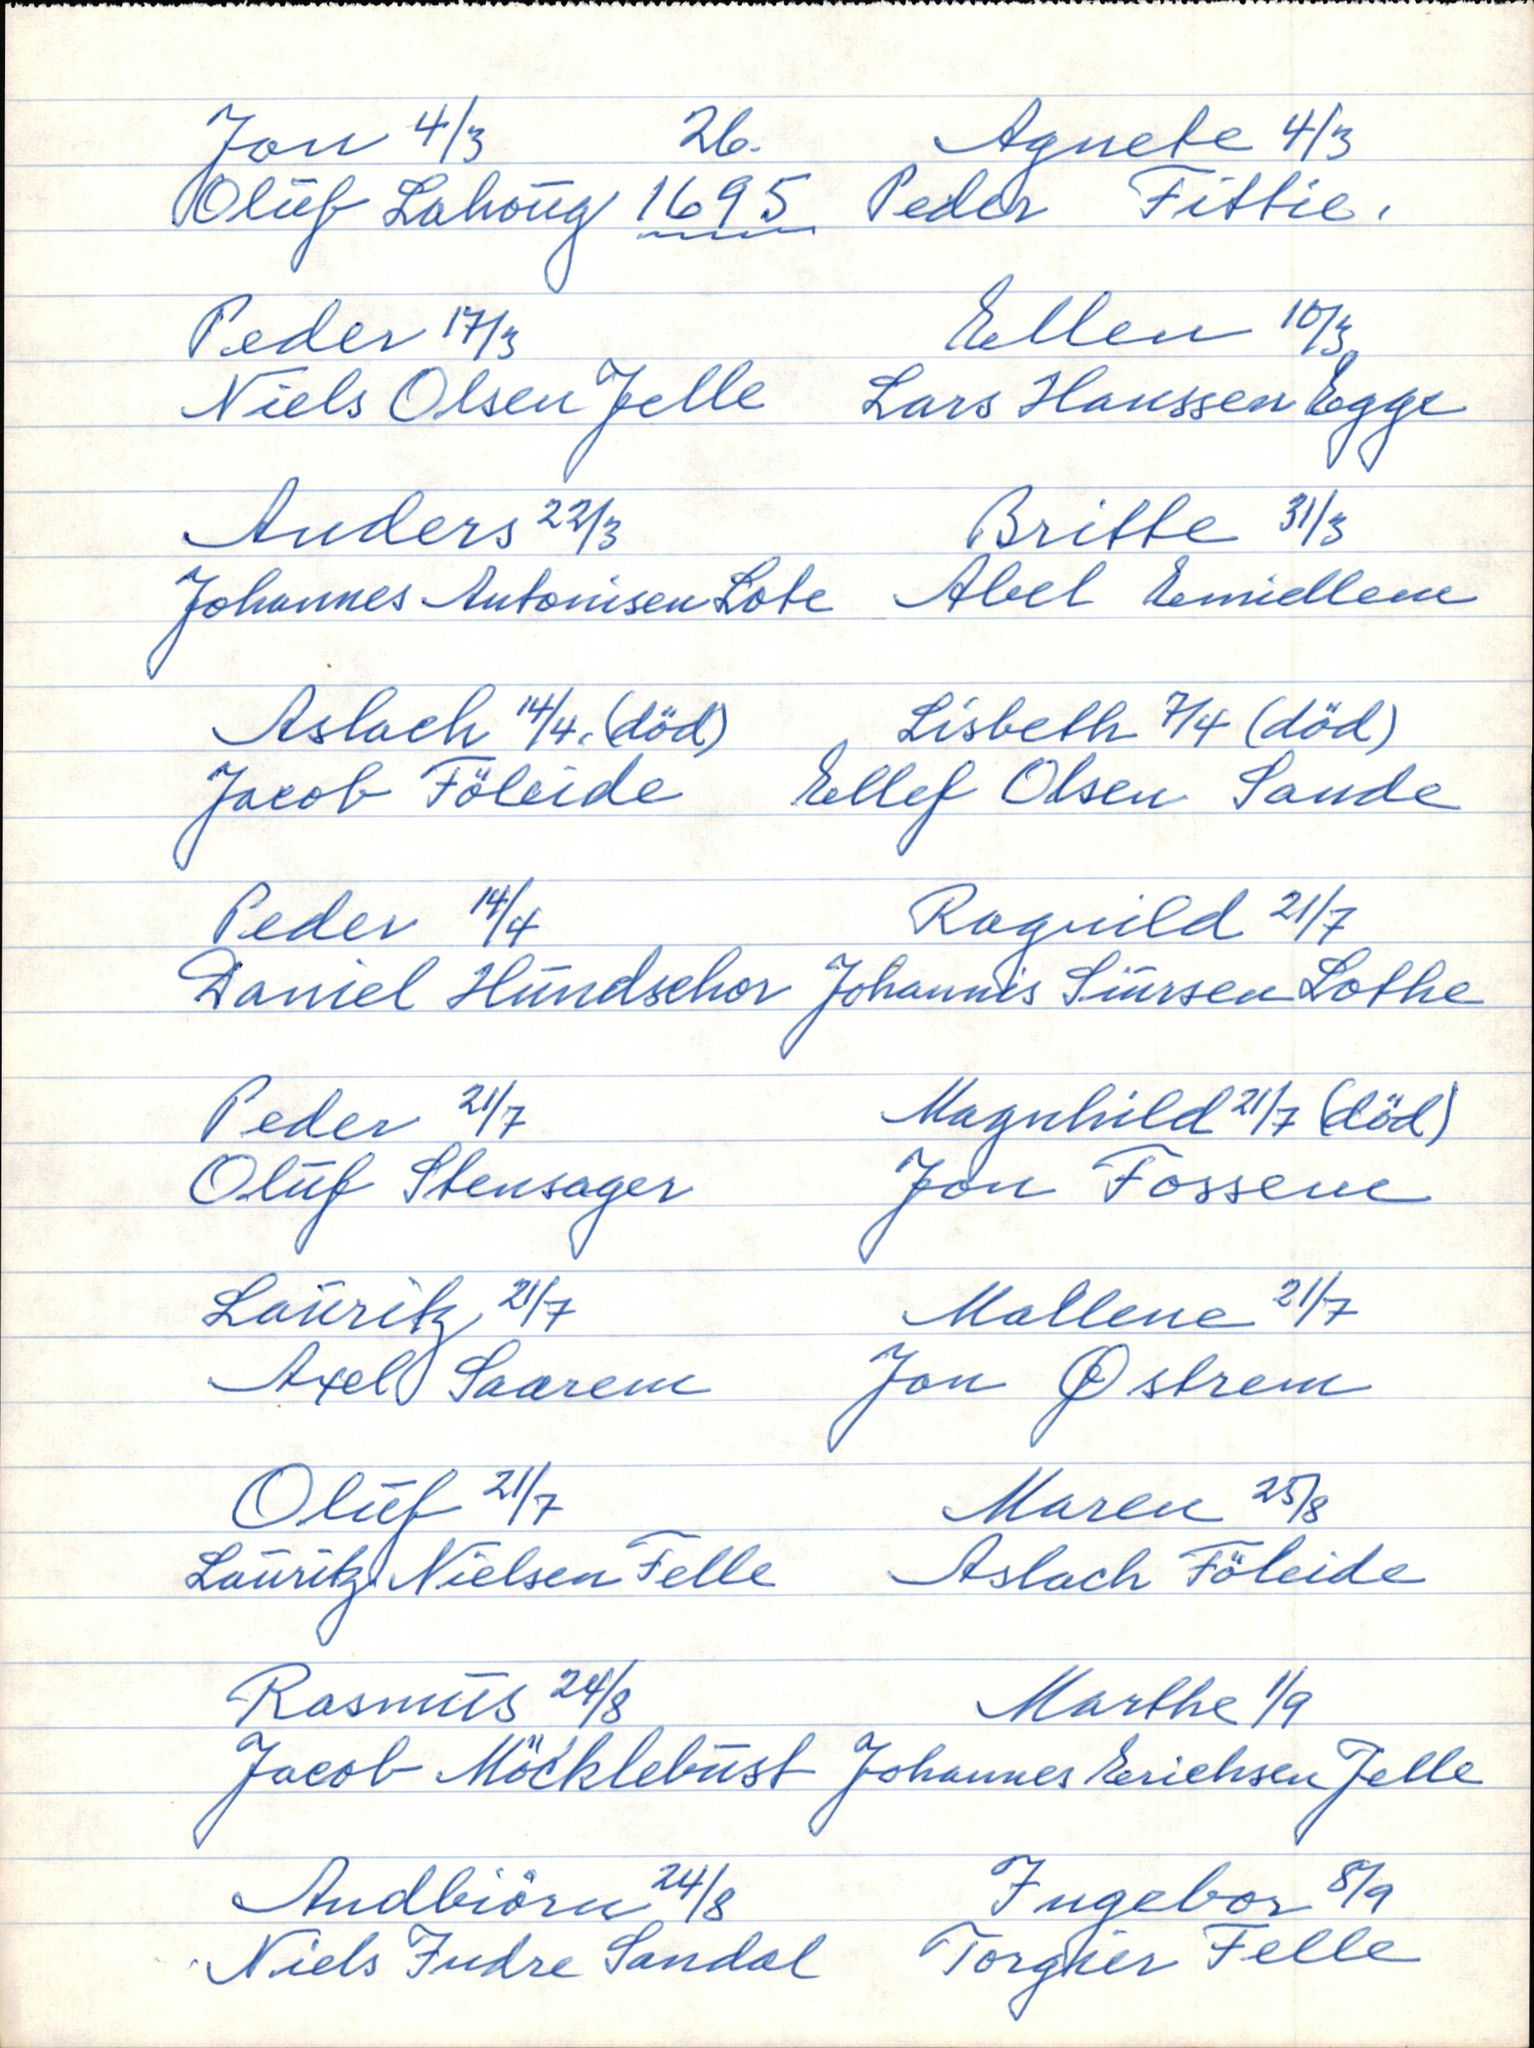 Jon 4/3 26. Agnete 4/3
Oluf Lahoug 1695 Peder Fittie.
Peder 17/3 Ellen 10/3
Niels Olsen Felle Lars Hanssen Egge
Anders 22/3 Britte 31/3
Johannes Antonisen Lote Abel Emiellem
Aslach 14/4. (död) Lisbeth 7/4 (död)
Jacob Föleide Ellef Olsen Sande
Peder 14/4 Ragnild 21/7
Daniel Hundschor Johannis Siursen Lothe
Peder 21/7 Magnhild 21/7 (död)
Oluf Stensager Jon Fossem
Lauritz 21/7 Mallene 21/7
Axel Saarem Jon Østrem
Oluf 21/7 Maren 25/8
Lauritz Nielsen Felle Aslach Föleide
Rasmus 24/8 Marthe 1/9
Jacob Möcklebust Johannes Erichsen Felle
Andbiörn 24/8 Ingebor 8/9
Niels Indre Sandal Torgier Felle